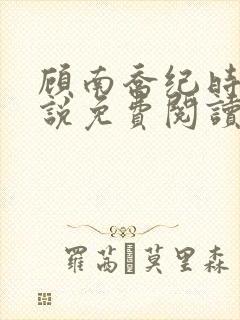 顾南喬纪時
說免費閱讀
羅茜�莫里森